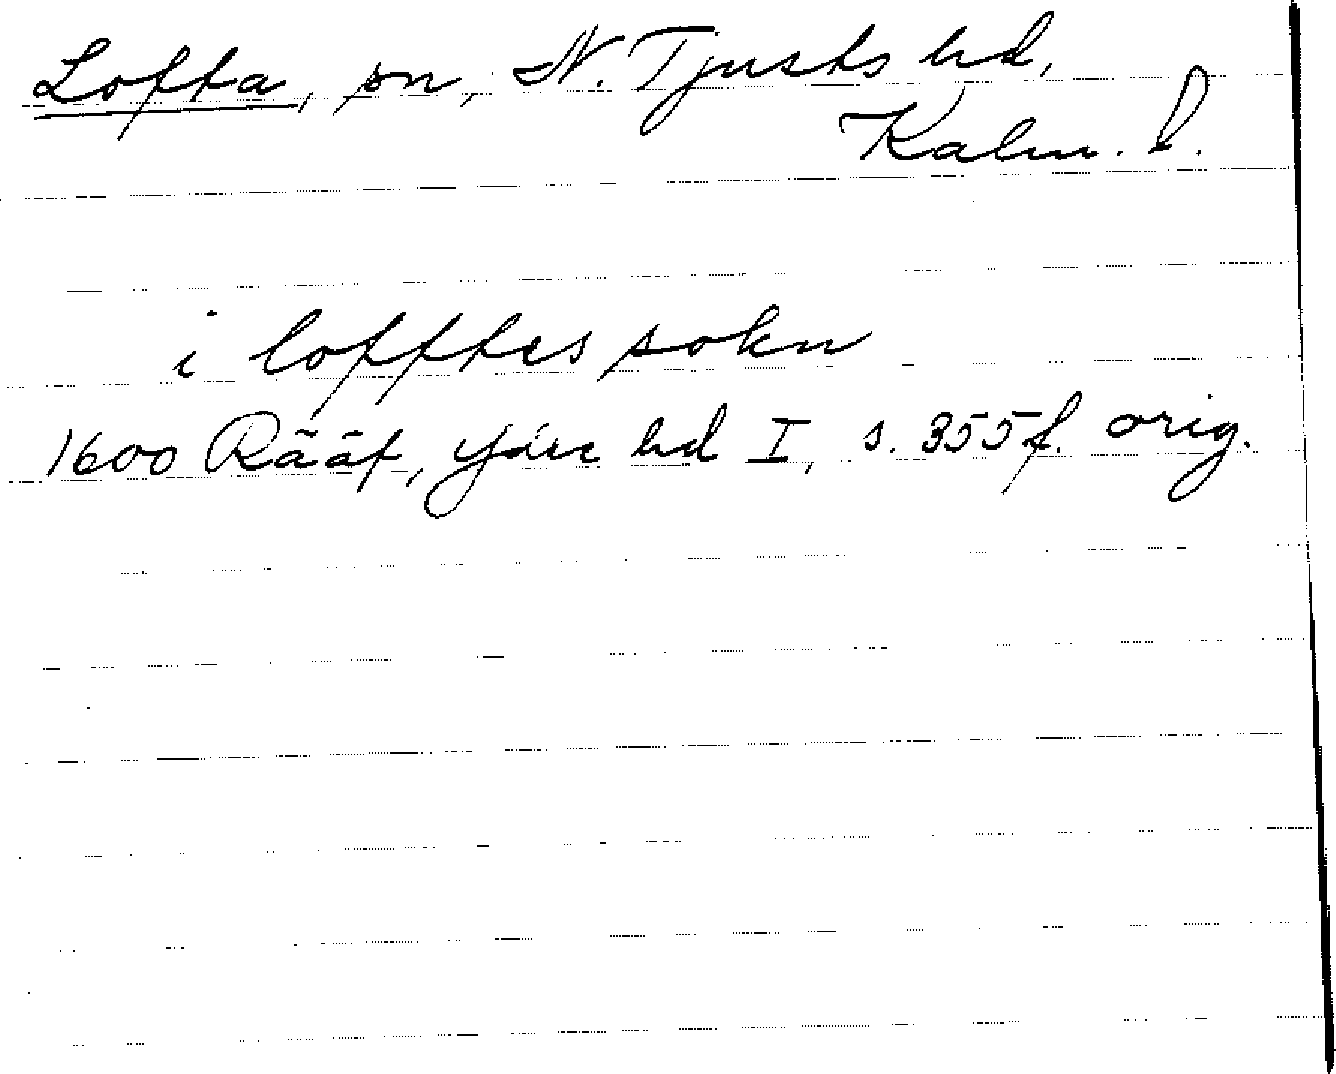 Lofta, sn, N. Tjusts hd,
Kalm. l.
i lofftes sokn
1600 Rääf, Ydre hd I, s. 355 f. orig.